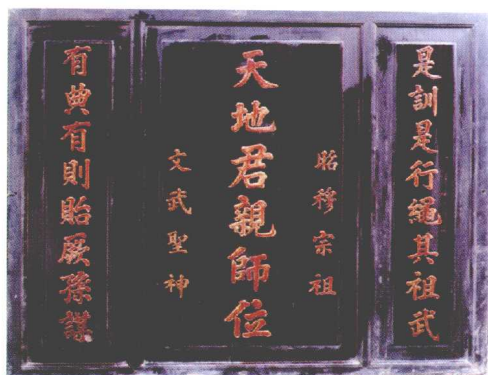 是訓是行繩其祖武
昭穆宗祖
天地君親師位
文武聖神
有典有則貽厥孫謀